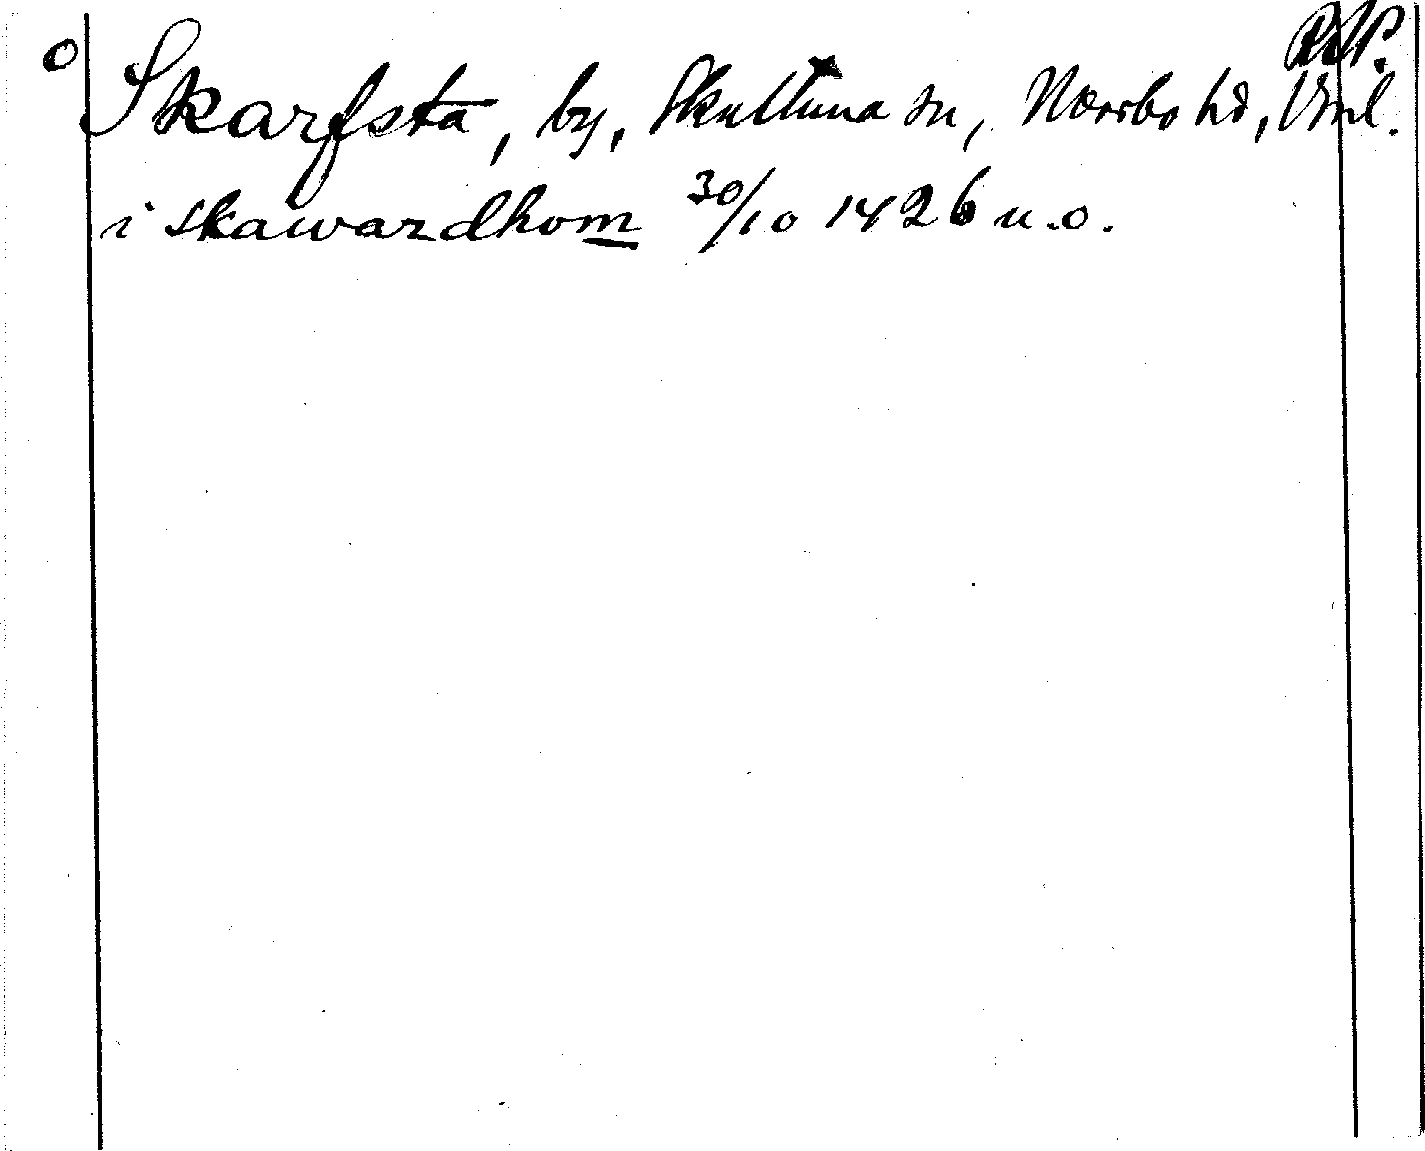 o Skarfsta, by, Skultuna sn, Norrbo hd, Vml.
i skawardhom 30/10 1426 u.o.